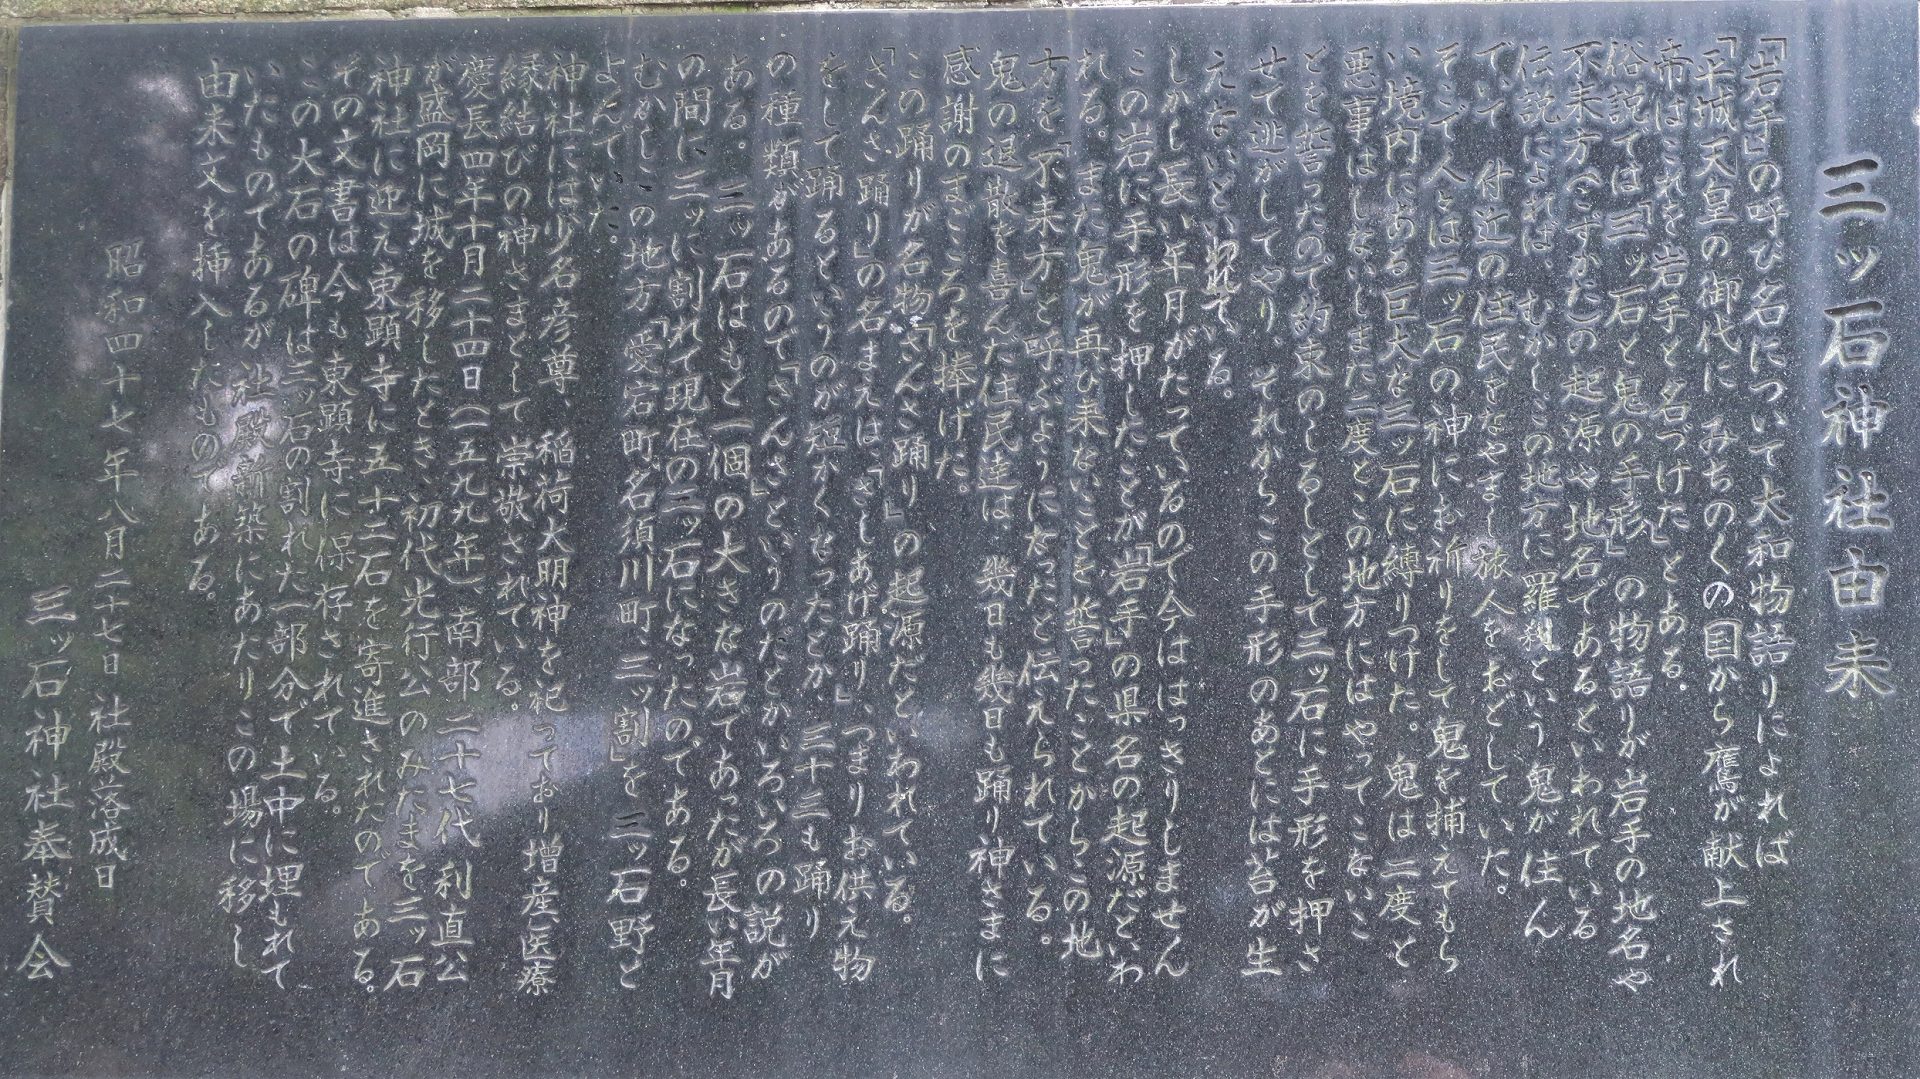 三ッ石神社由来
「岩手」の呼び名について大和物語りによれば
「平城天皇の御代に みちのくの国から鷹が献上され
帝はこれを岩手と名づけた」とある。
俗説では「三ッ石と鬼の手形」の物語りが岩手の地名や
不来方(こずかた)の起源や地名であるといわれている
伝説によれば、むかしこの地方に羅刹という鬼が住ん
でいて 付近の住民をなやまし旅人をおどしていた。
そこで人々は三ッ石の神にお祈りをして鬼を捕えてもら
い境内にある巨大な三ッ石に縛りつけた。鬼は二度と
悪事はしないしまた二度とこの地方にはやってこないこ
とを誓ったので約束のしるしとして三ッ石に手形を押さ
せて逃がしてやり、それからこの手形のあとには苔が生
えないといわれている。
しかし長い年月がたっているので今ははっきりしません
この岩に手形を押したことが「岩手」の県名の起源だといわ
れる。また鬼が再び来ないことを誓ったことからこの地
方を「不来方」と呼ぶようになったと伝えられている。
鬼の退散を喜んだ住民達は、幾日も幾日も踊り神さまに
感謝のまごころを捧げた。
この踊りが名物「さんさ踊り」の起源だといわれている。
「さんさ踊り」の名まえは、「さしあげ踊り」、つまりお供え物
をして踊るというのが短かくなったとか、三十三も踊り
の種類があるので「さんさ」というのだとかいろいろの説が
ある。三ッ石はもと一個の大きな岩であったが長い年月
の間に三ッに割れて現在の三ッ石になったのである。
むかしこの地方「愛宕町、名須川町、三ッ割」を 三ッ石野と
よんでいた。
神社には少名彦尊、稲荷大明神を祀っており増産と医療
縁結びの神さまとして崇敬されている。
慶長四年十月二十四日(一五九九年)、南部二十七代利直公
が盛岡に城を移したとき、初代光行公のみたまを三ッ石
神社に迎え東顕寺に五十二石を寄進されたのである。
その文書は今も東顕寺に保存されている。
この大石の碑は三ッ石の割れた一部分で土中に埋もれて
いたものであるが 社殿新築にあたりこの場に移し
由来文を挿入したものである。
昭和四十七年八月二十七日 社殿落成日
三ッ石神社奉賛会